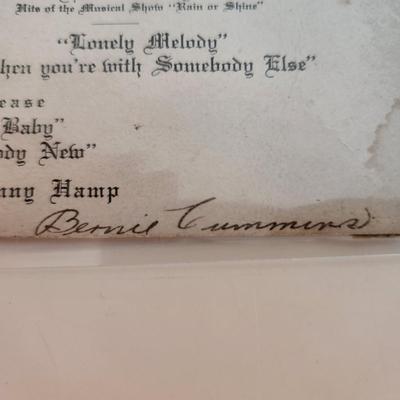 Hits of the Musical Show "Rain or Shine"
"Lonely Melody"
hen you're with Somebody Else"
ease
Baby"
ody New"
nny Hamp
Bernie Cummins